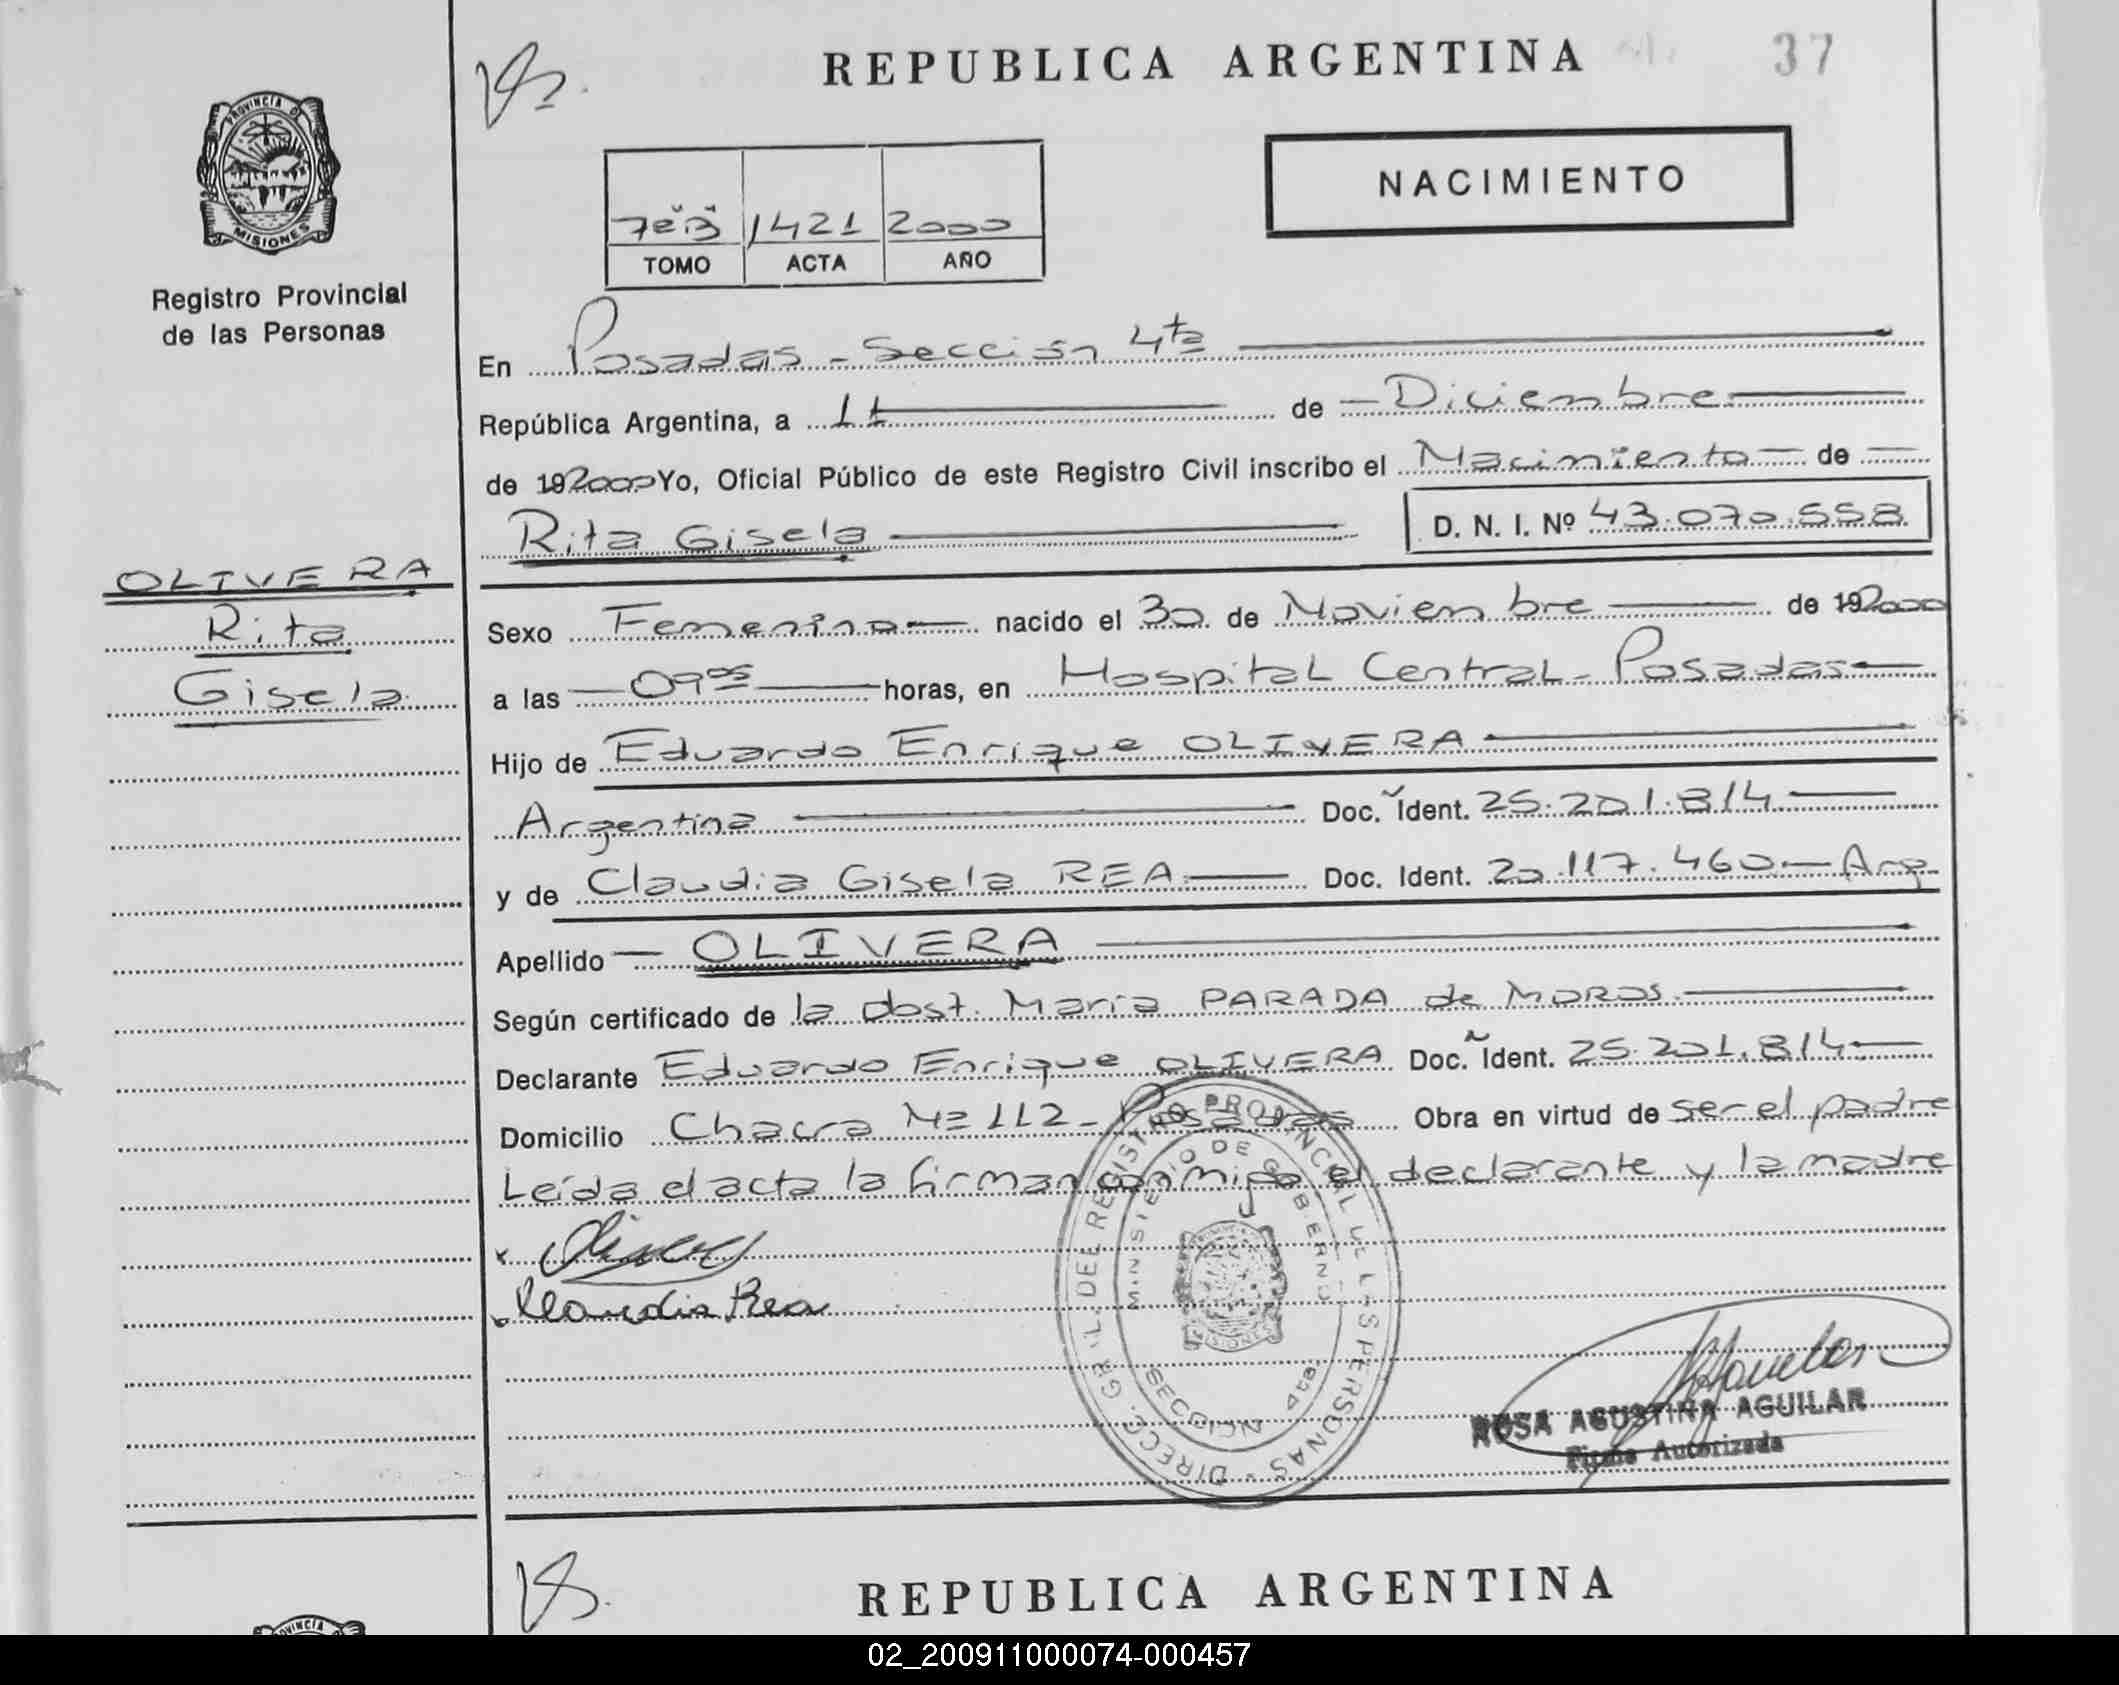 REPUBLICA ARGENTINA
37
PROVINCIA DE
MISIONES
Registro Provincial
de las Personas
NACIMIENTO
1421 2000
TOMO ACTA AÑO
En Posadas - Sección 4ta
República Argentina, a 11 de Diciembre
de 192000 Yo, Oficial Público de este Registro Civil inscribo el Nacimiento de
Rita Gisela D. N. I. Nº 43.070.558
OLIVERA
Rita
Gisela
Sexo Femenino nacido el 30 de Noviembre de 192000
a las 09 05 horas, en Hospital Central - Posadas
Hijo de Eduardo Enrique OLIVERA
Argentina Doc. Ident. 25.201.814
y de Claudia Gisela REA Doc. Ident. 20.117.460 - Arg
Apellido OLIVERA
Según certificado de la Obst. María PARADA de MOROS
Declarante Eduardo Enrique OLIVERA Doc. Ident. 25.201.814
Domicilio Chacra Nº 112 - Posadas Obra en virtud de ser el padre
Leída el acta la firman conmigo el declarante y la madre
Claudia Rea
DIRECC. GR'L. DEL REGISTRO PROVINCIAL DE LAS PERSONAS
MINISTERIO DE GOBIERNO
SECCION 4ta
MISIONES
ROSA AGUSTINA AGUILAR
Firma Autorizada
REPUBLICA ARGENTINA
PROVINCIA
02_200911000074-000457